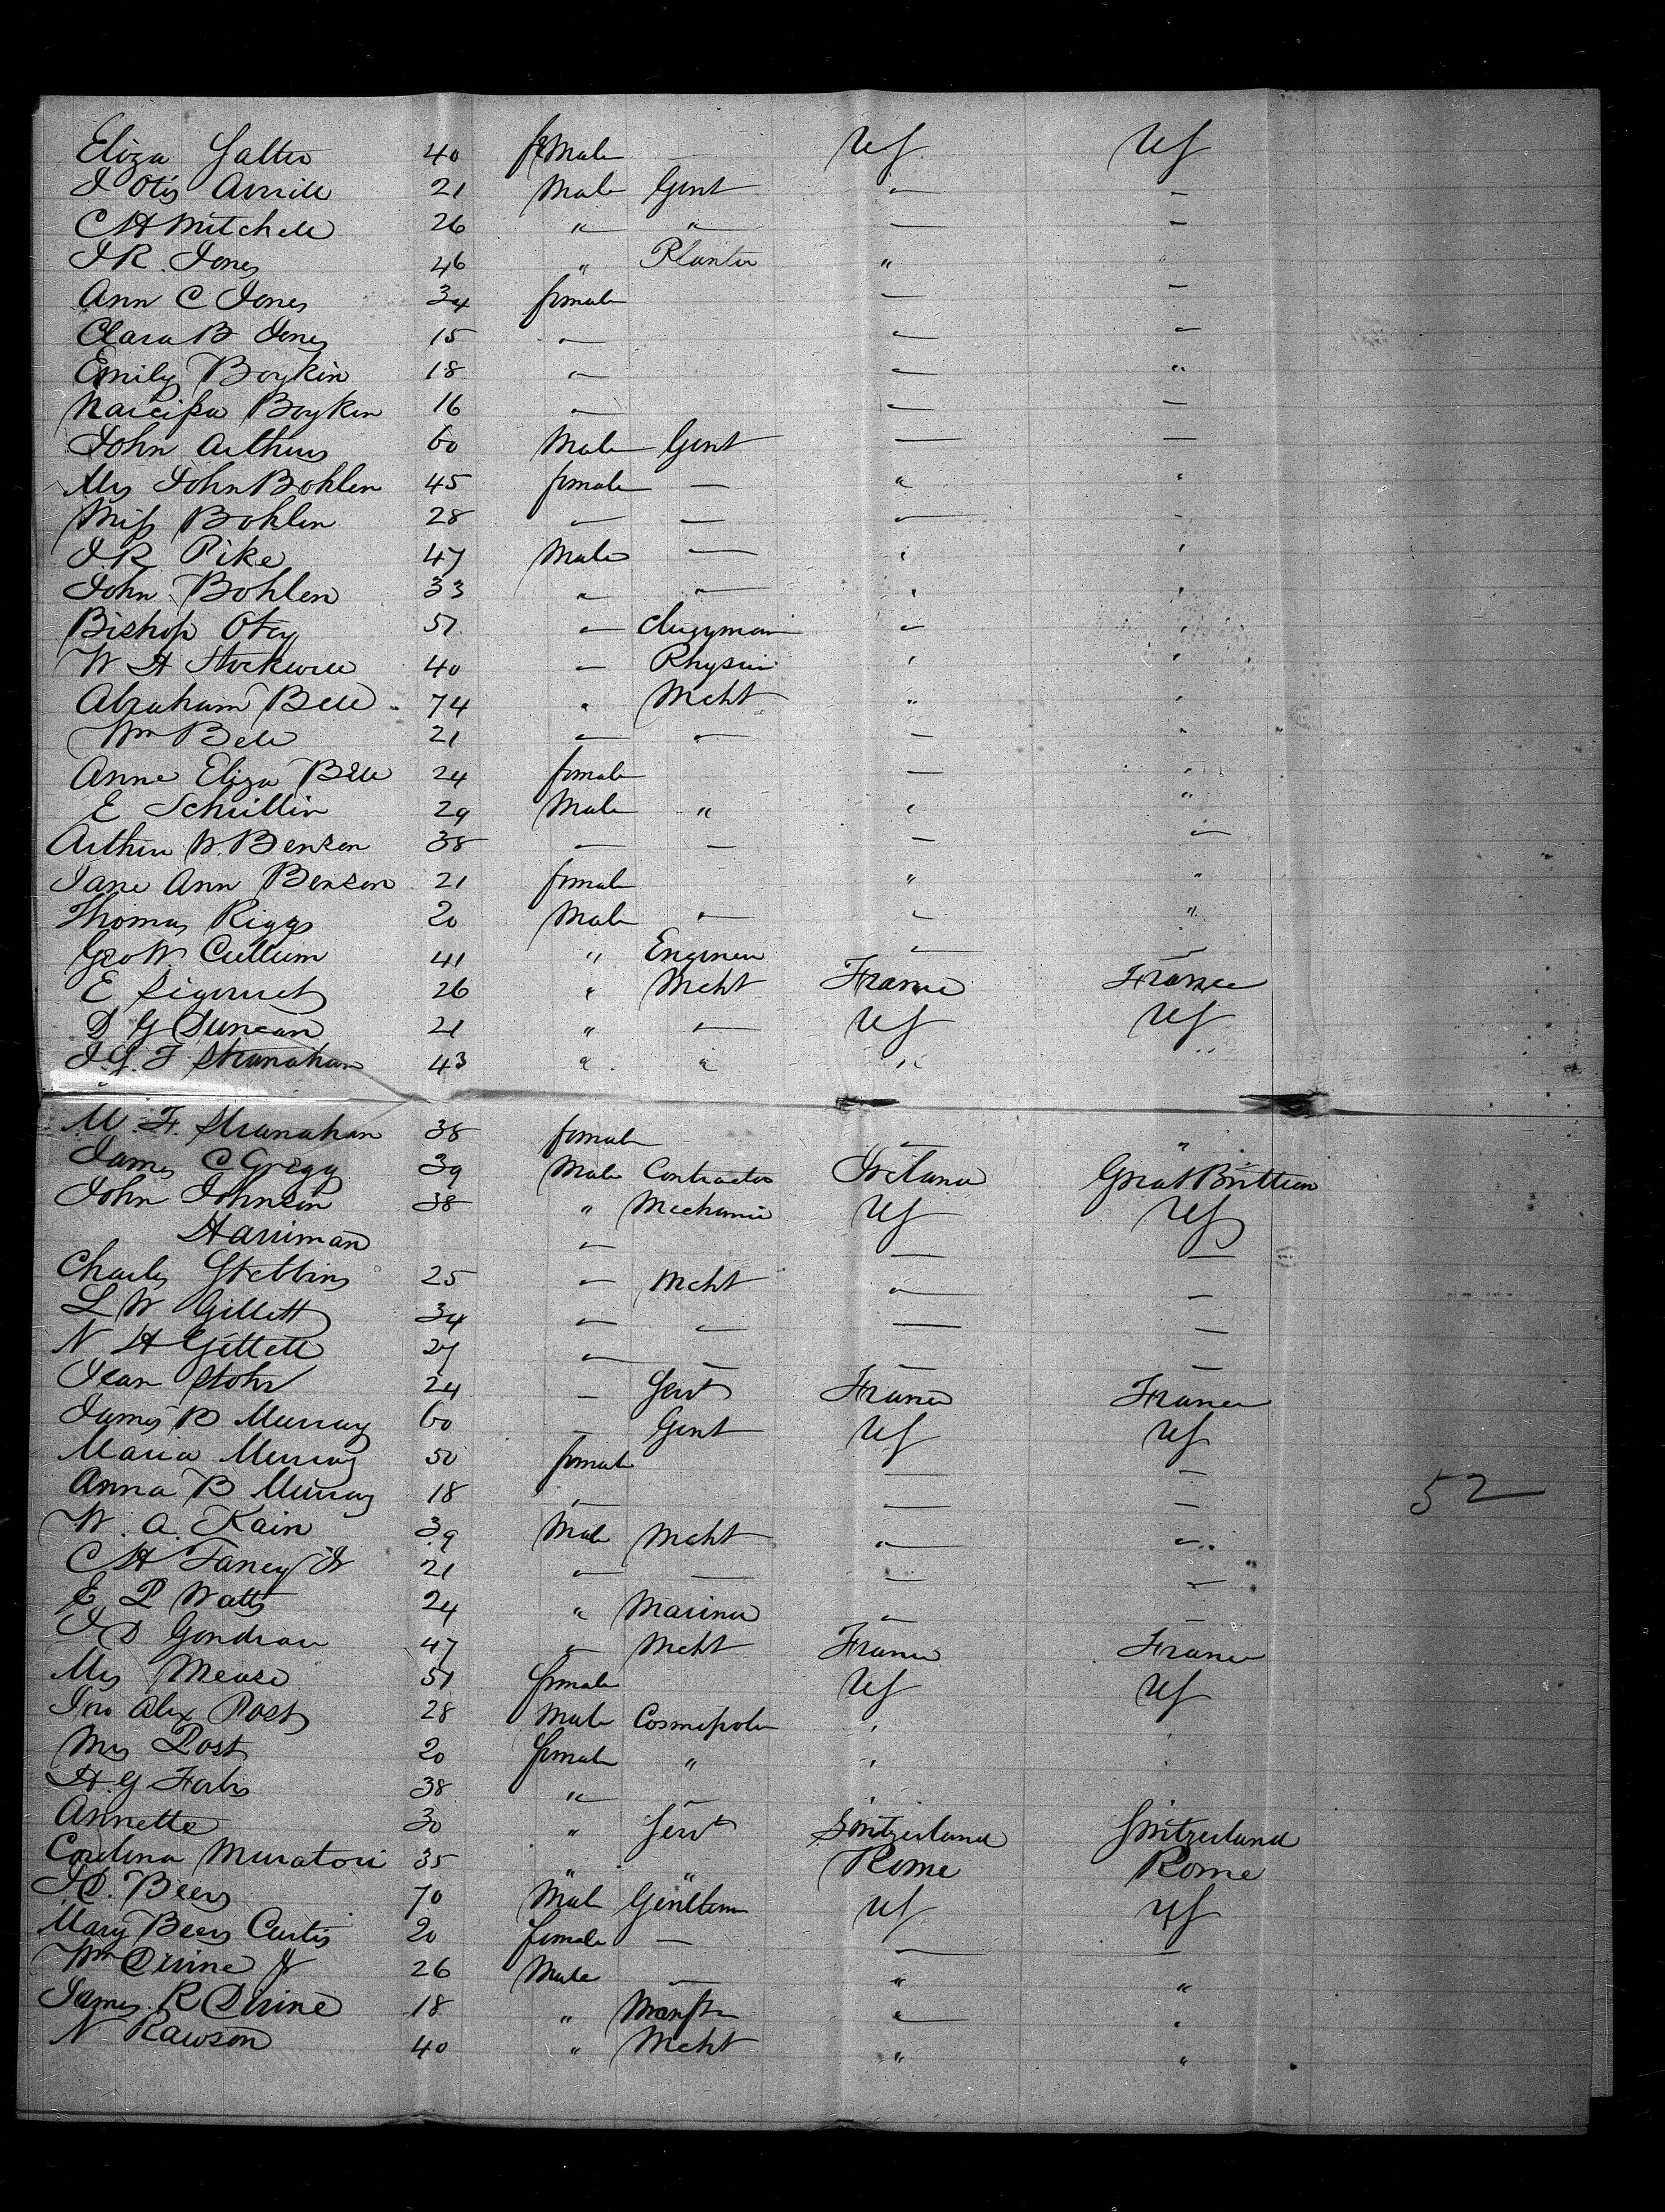 Eliza Salter 40 feMale — US US
J Otis Averill 21 Male Gent " "
C H Mitchell 26 " " " "
J R. Jones 46 " Planter " "
Ann C Jones 34 female " "
Clara B Jones 15 " " "
Emily Boykin 18 " " "
Narcissa Boykin 16 " " "
John Arthurs 60 Male Gent " "
Mrs John Bohlen 45 female — " "
Miss Bohlen 28 " — " "
J. R. Pike 47 Male — " "
John Bohlen 33 " " " "
Bishop Otey 51 " Clergyman " "
W H Stockwell 40 " Physin " "
Abraham Bell 74 " Mcht " "
Wm Bell 21 " " " "
Anne Eliza Bell 24 female " "
E 29 Male " " "
Arthur W. Benson 38 " " " "
Jane Ann Benson 21 female " "
Thomas Riggs 20 Male " " "
Geo W. Cullum 41 " Engineer " "
E 26 " Mcht France France
D G Duncan 21 " " US US
J. S. T Stranahan 43 " " " "
M. F. Stranahan 38 female " "
James C Gregg 39 Male Contractor Ireland Great Brittian
John Johnson 38 " Mechanic US US
Harriman " " "
Charles Stebbins 25 " Mcht " "
L W Gillett 34 " " " "
N H Gillett 27 " " " "
Jean Stohr 24 " Servt France France
James B Murray 60 Gent US US
Maria Murray 50 female " "
Anna B Murray 18 " " " 52
W. A. Kain 39 Male Mcht " "
C H Faney Jr 21 " " " "
E P Watts 24 " Mariner " "
J D Gondran 47 " Mcht France France
Mrs Mease 51 female US US
Jno Alex Post 28 Male Cosmopole " "
Mrs Post 20 female " " "
H. G Forbs 38 " " " "
Annette 30 " Servt Switzerland Switzerland
Cordina Muratori 35 " " Rome Rome
J D. Beers 70 Male Gentlemn US US
Mary Beers Curtis 20 female — " "
Wm Divine Jr 26 Male " " "
James R Divine 18 " Manftr " "
N Rawson 40 " Mcht " "